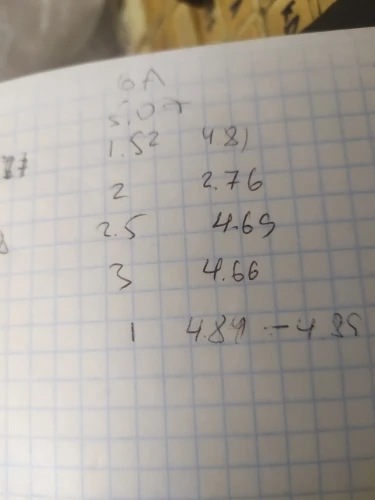 6A
5.07
1.52 4.81
2 2.76
2.5 4.69
3 4.66
1 4.84 - 4.85